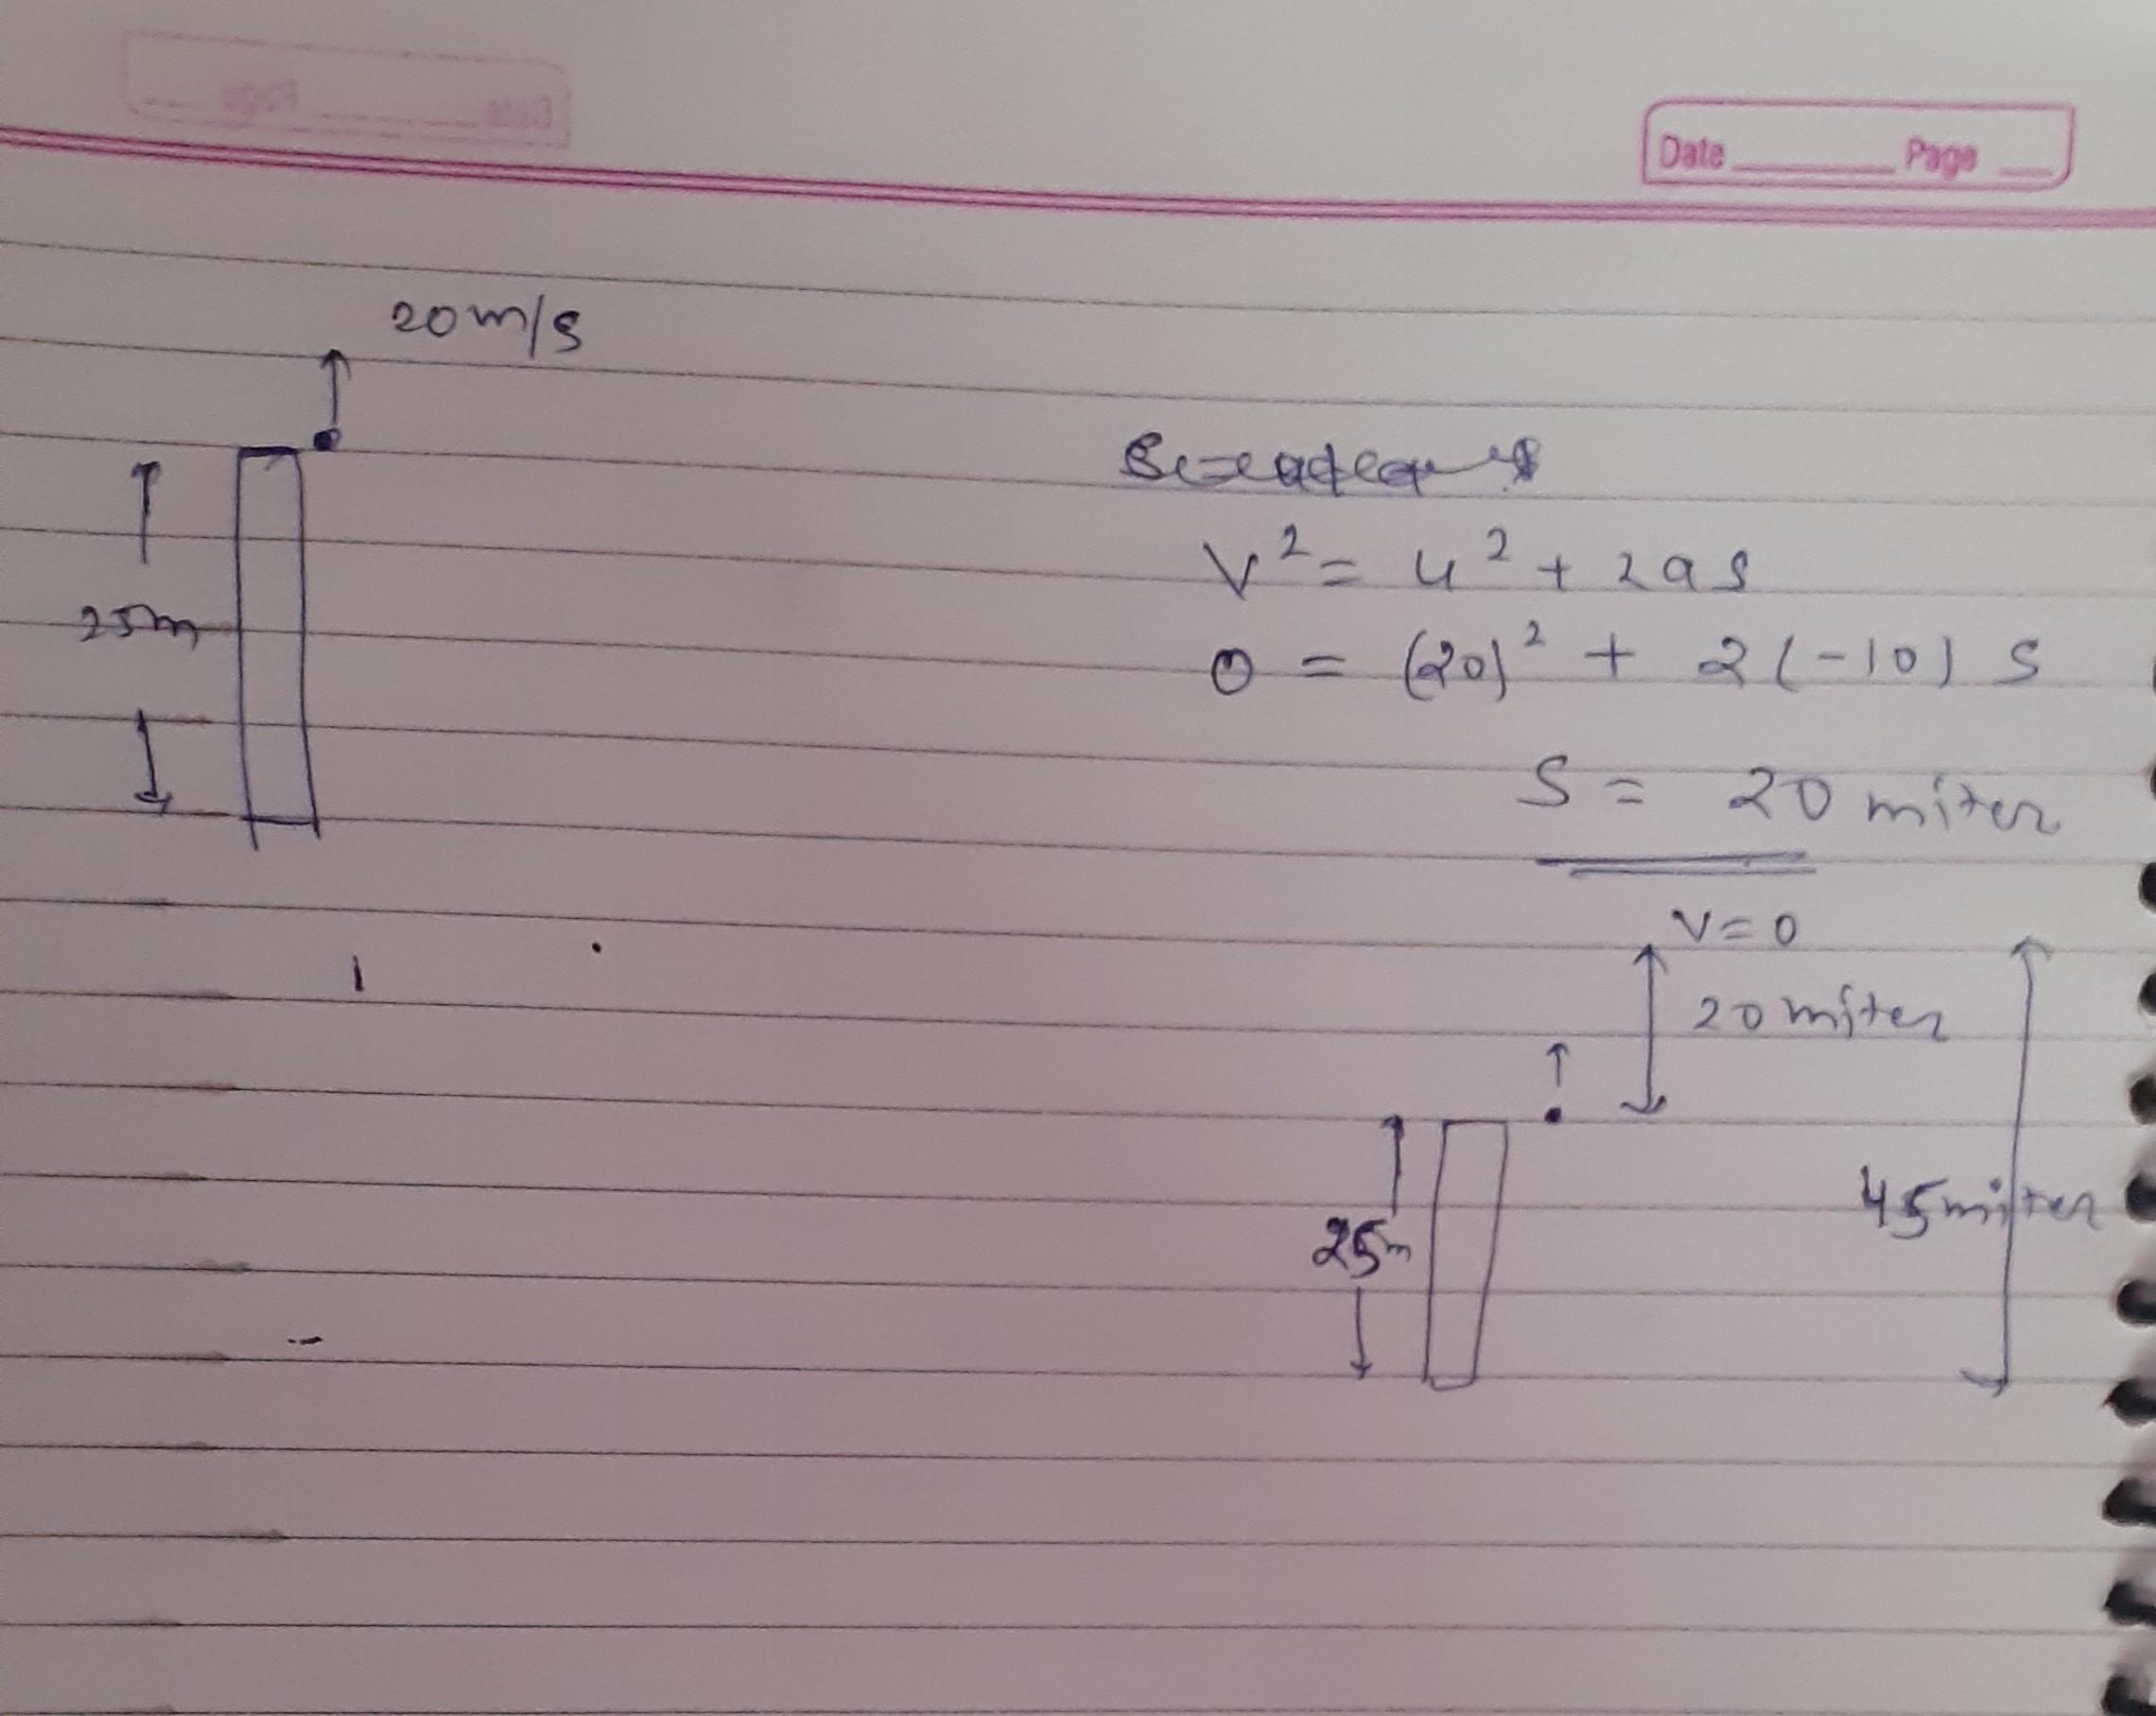 Date Page
20 m/s
25m
V² = u² + 2as
0 = (20)² + 2(-10) S
S = 20 miter
V=0
20 miter
25m
45 miter